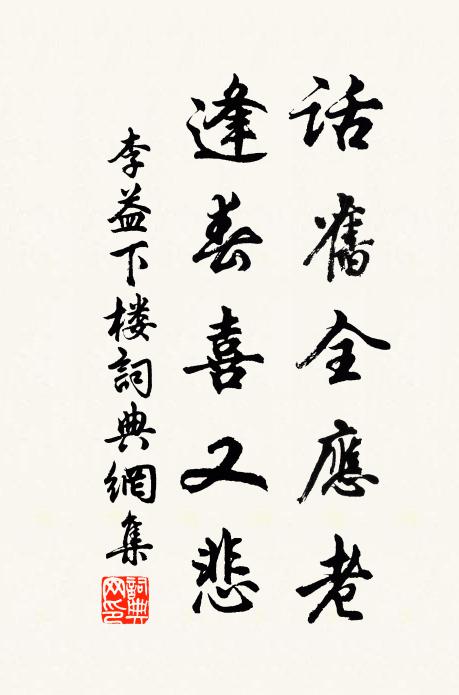 話舊全應老
逢春喜又悲
李益下楼詞典網集
詞典网印